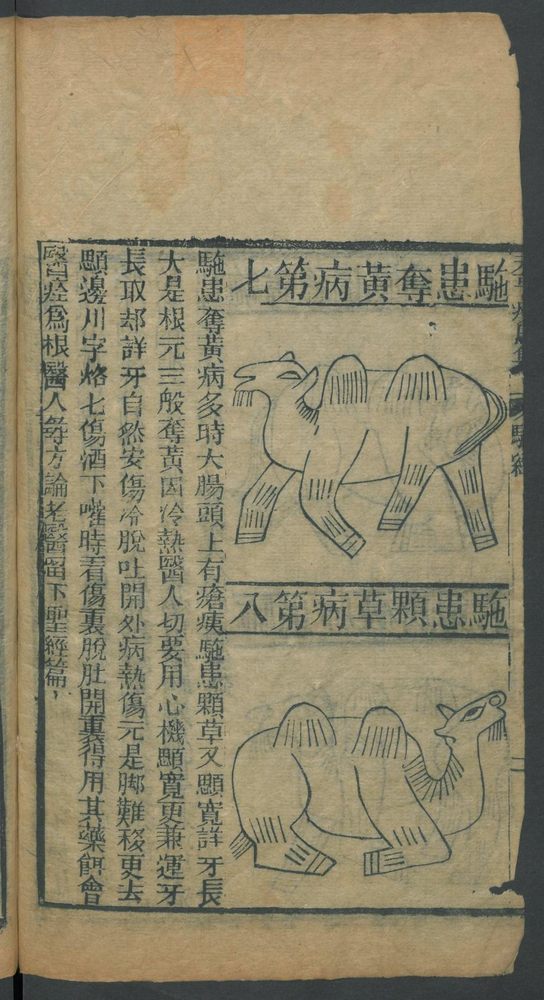 駞患奪黃病第七
駞患顆草病第八
駞患奪黃病多時大腸頭上有瘡痍駞患顆草又顋寬詳牙長
大是根元三般奪黃因冷熱醫人切要用心機顋寬更兼運牙
長取却詳牙自然安傷冷脫吐開外病熱傷元是脚難移更去
顋邊川字烙七傷酒下嚾時看傷裏脫肚開裏得用其藥餌會
醫四症爲根醫人每方論老醫留下聖經篇
駞經
二